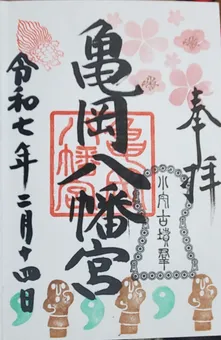 奉拝
亀岡八幡宮
令和七年二月十四日
亀岡
八幡宮